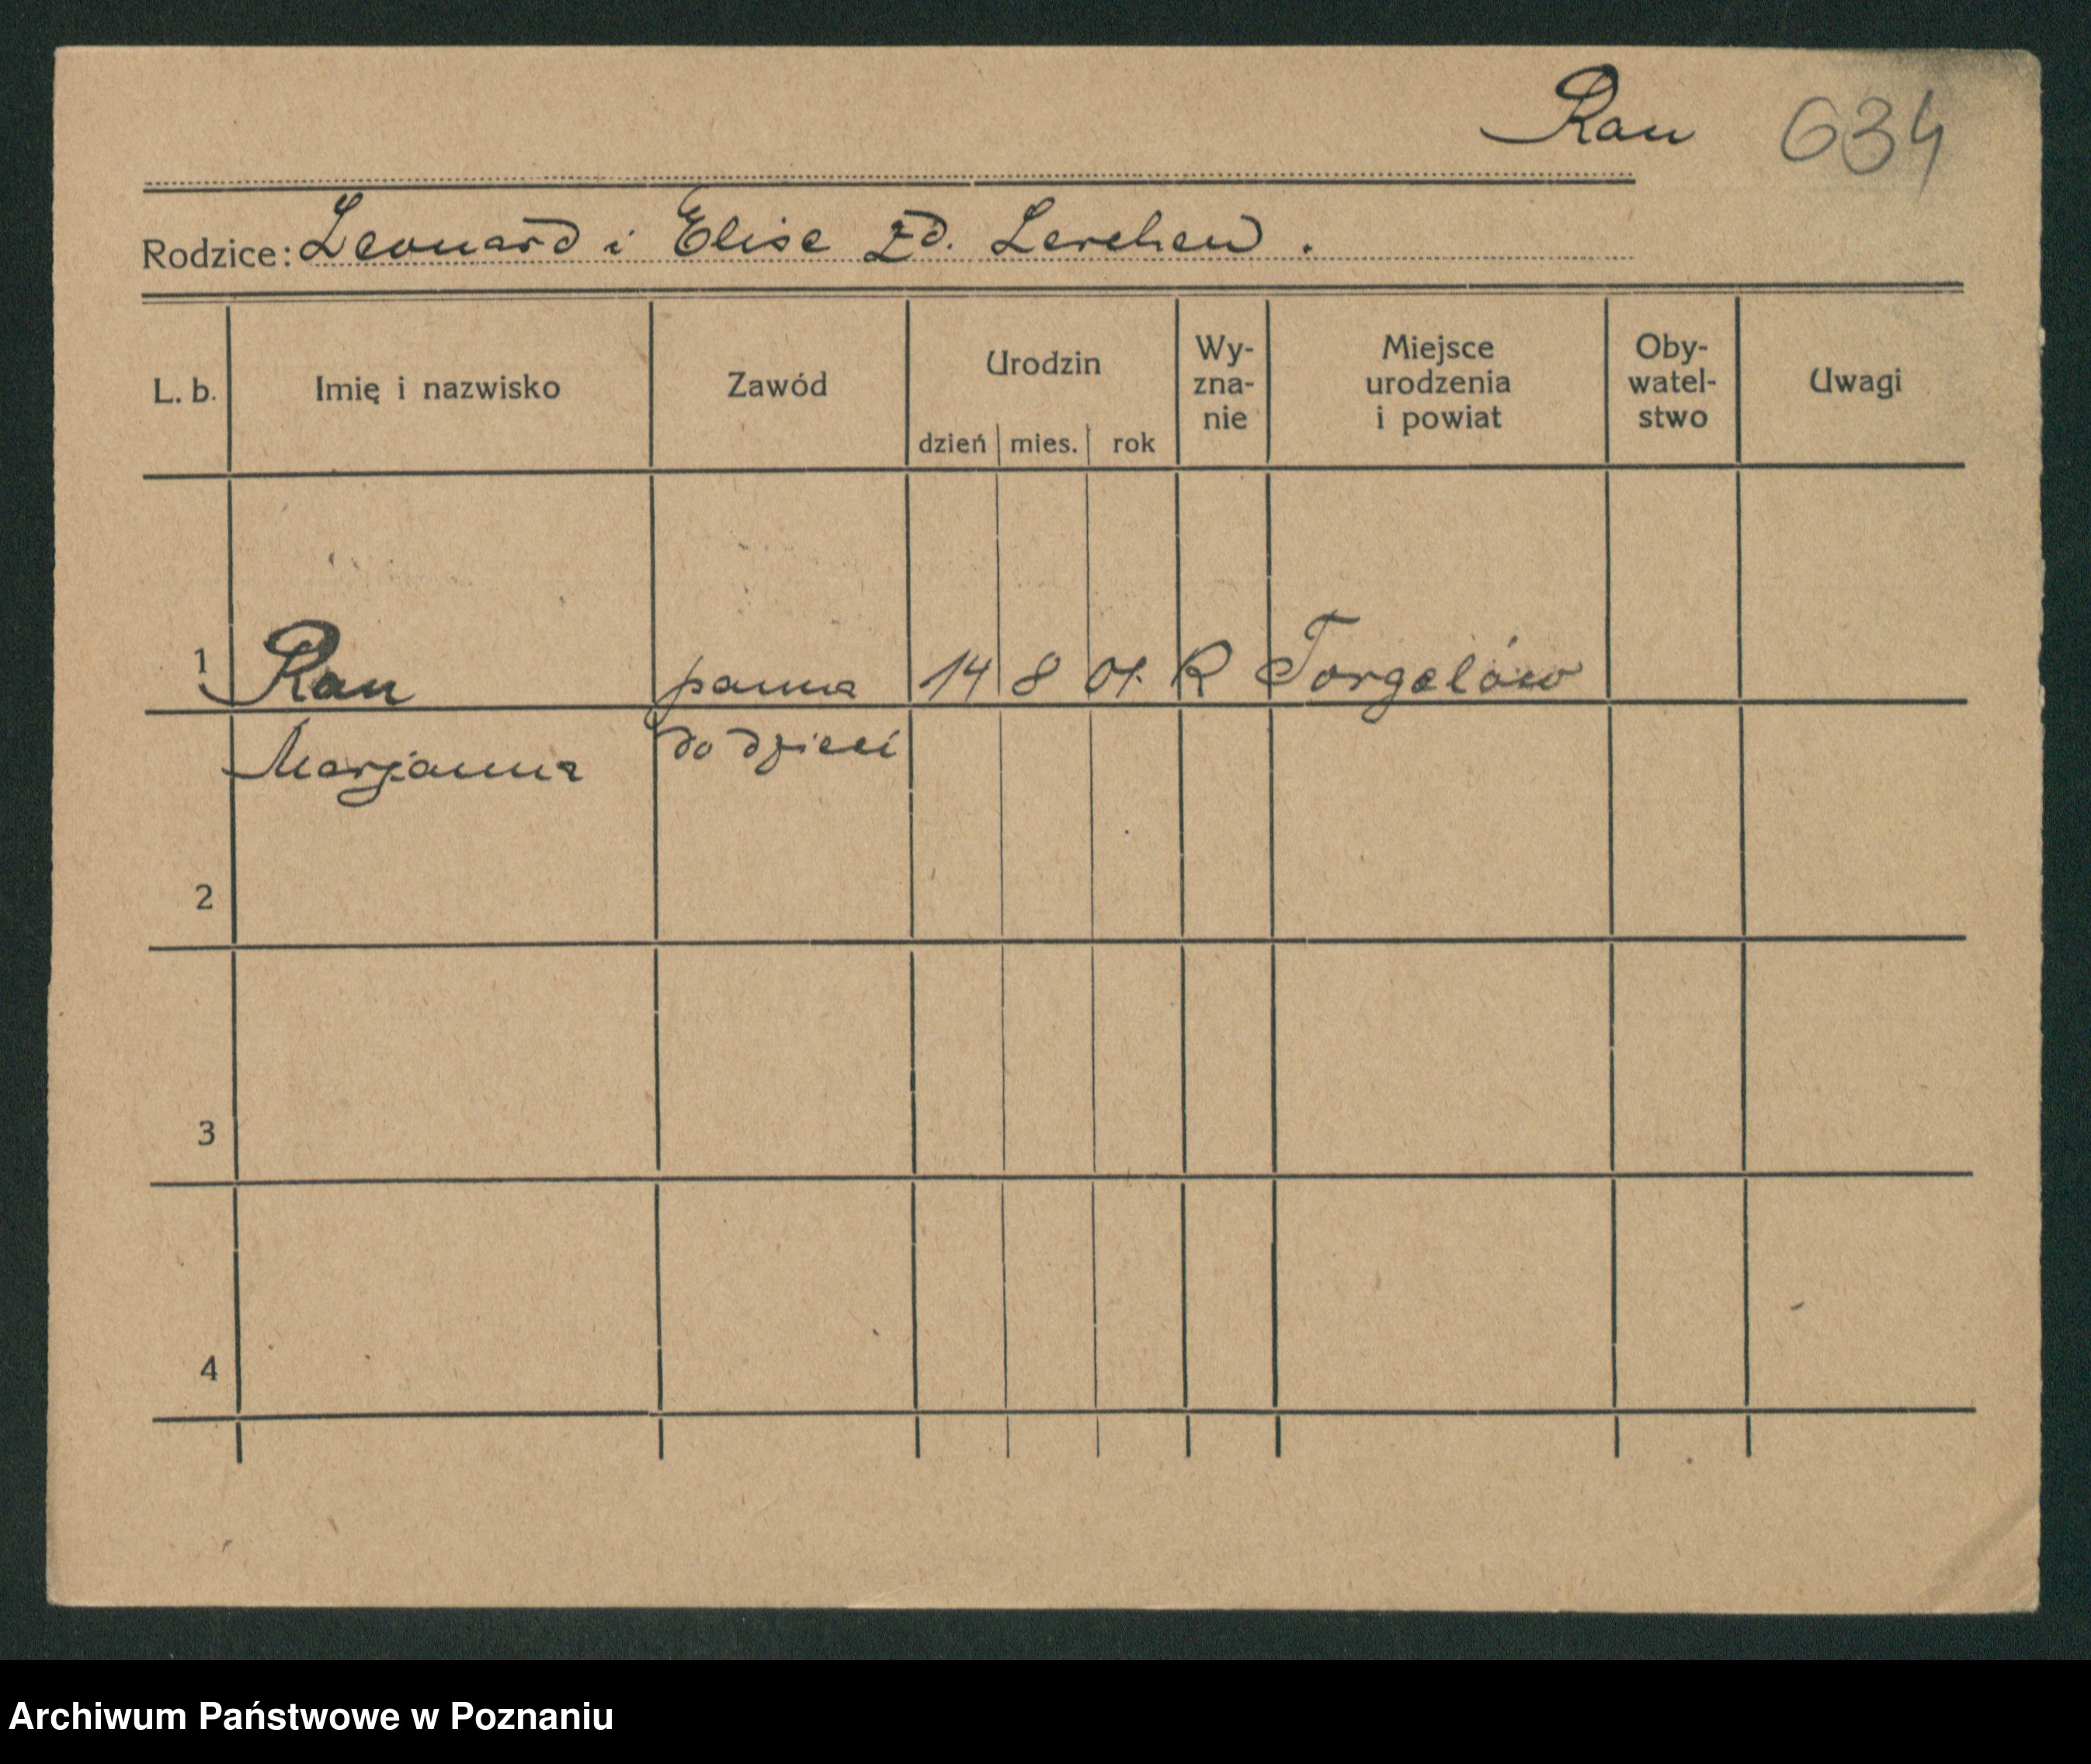 Rau 634
Rodzice: Leonard i Elise zd. Lerchen.
L. b. Imię i nazwisko Zawód Urodzin dzień mies. rok Wy-zna-nie Miejsce urodzenia i powiat Oby-watel-stwo Uwagi
1 Rau panna 14 8 01. R Torgelów
Marjanna do dzieci
2
3
4
Archiwum Państwowe w Poznaniu